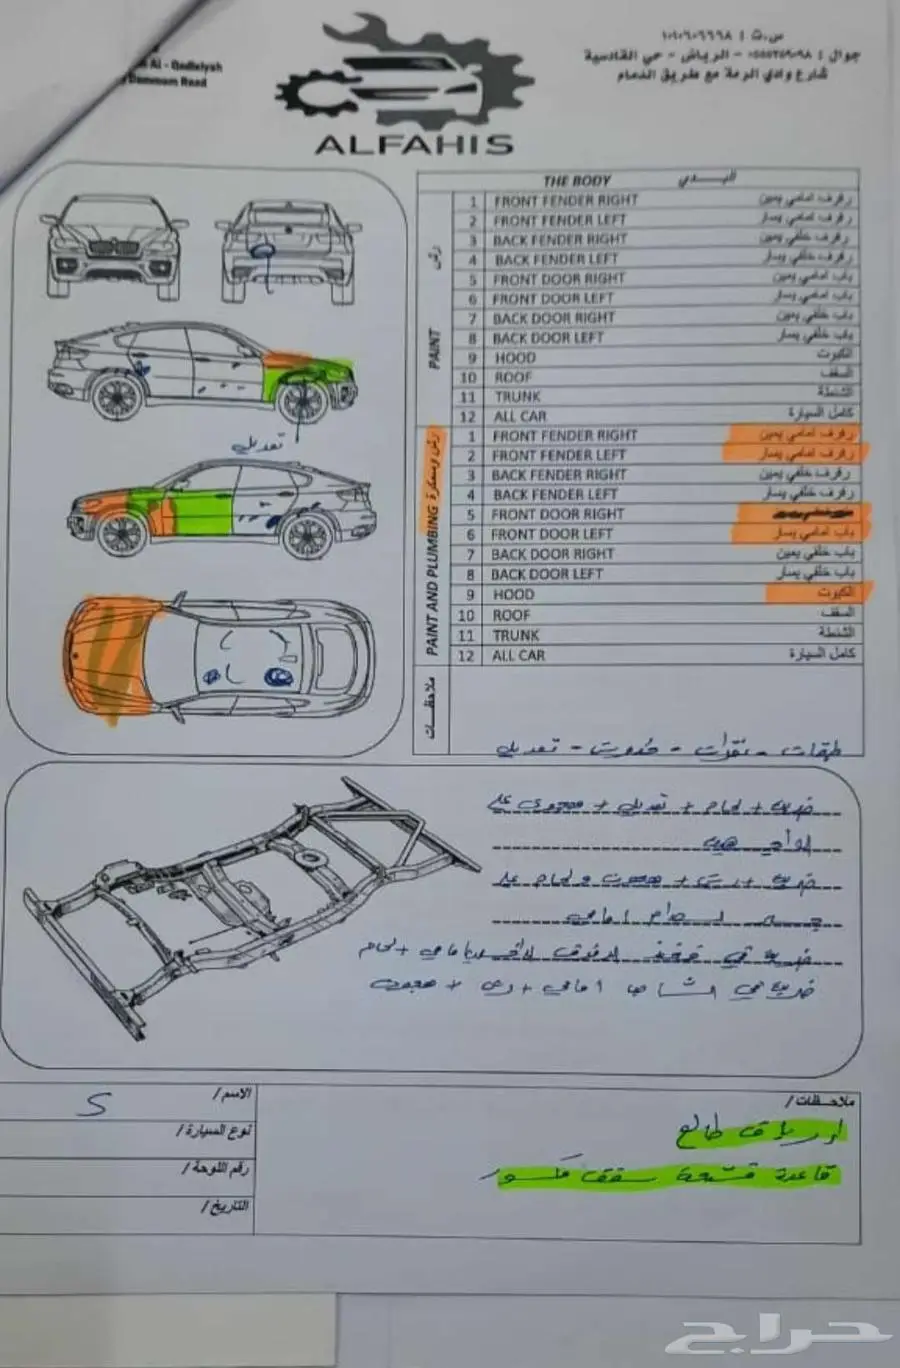 Al - Qadisiyah
Dammam Road
ALFAHIS
س.ت :
جوال : - الرياض - حي القادسية
شارع وادي الرمة مع طريق الدمام
THE BODY البـــدي
PAINT رش
1 FRONT FENDER RIGHT رفرف امامي يمين
2 FRONT FENDER LEFT رفرف امامي يسار
3 BACK FENDER RIGHT رفرف خلفي يمين
4 BACK FENDER LEFT رفرف خلفي يسار
5 FRONT DOOR RIGHT باب امامي يمين
6 FRONT DOOR LEFT باب امامي يسار
7 BACK DOOR RIGHT باب خلفي يمين
8 BACK DOOR LEFT باب خلفي يسار
9 HOOD الكبوت
10 ROOF السقف
11 TRUNK الشنطة
12 ALL CAR كامل السيارة
PAINT AND PLUMBING رش وسمكرة
1 FRONT FENDER RIGHT رفرف امامي يمين
2 FRONT FENDER LEFT رفرف امامي يسار
3 BACK FENDER RIGHT رفرف خلفي يمين
4 BACK FENDER LEFT رفرف خلفي يسار
5 FRONT DOOR RIGHT
6 FRONT DOOR LEFT باب امامي يسار
7 BACK DOOR RIGHT باب خلفي يمين
8 BACK DOOR LEFT باب خلفي يسار
9 HOOD الكبوت
10 ROOF السقف
11 TRUNK الشنطة
12 ALL CAR كامل السيارة
تعديل
ملاحظـــات
طبقات - نقرات - خدوش - تعديل
ضربة + لحام + تعديل + معجون على
ضربة + رش + معجون ولحام على
صدام امامي
ضربة في امامي + لحام
ضربة في الشاصي امامي + رش + معجون
الاسم / S
نوع السيارة /
رقم اللوحة /
التاريخ /
ملاحـــظات /
ايرباق طالع
قاعدة فتحة سقف مكسور
حراج